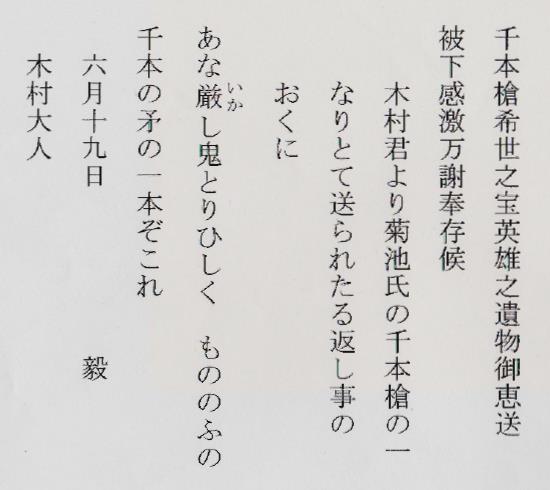 千本槍希世之宝英雄之遺物御恵送
被下感激万謝奉存候
木村君より菊池氏の千本槍の一
なりとて送られたる返し事の
おくに
あな厳し鬼とりひしく　もののふの
いか
千本の矛の一本ぞこれ
六月十九日　毅
木村大人